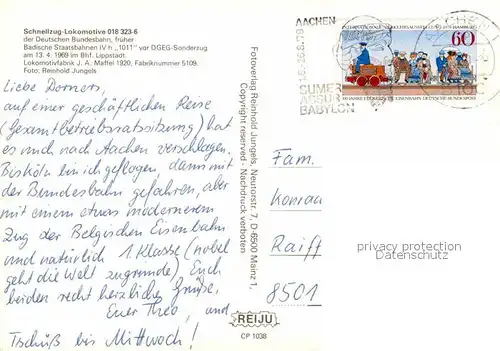 Schnellzug-Lokomotive 018 323-6
der Deutschen Bundesbahn, früher
Badische Staatsbahnen IV h „1011" vor DGEG-Sonderzug
am 13. 4. 1969 im Bhf. Lippstadt.
Lokomotivfabrik J. A. Maffei 1920, Fabriknummer 5109.
Foto: Reinhold Jungels
Liebe Dorners,
auf einer geschäftlichen Reise
(Gesamtbetriebsratssitzung) hat
es mich nach Aachen verschlagen.
Bis Köln bin ich geflogen, dann mit
der Bundesbahn gefahren, aber
mit einem etwas moderneren
Zug der Belgischen Eisenbahn
und natürlich 1. Klasse (nobel
geht die Welt zugrunde). Euch
beiden recht herzliche Grüße,
Euer Theo, und
Tschüß bis Mittwoch!
Fotoverlag Reinhold Jungels, Neutorstr. 7, D-6500 Mainz 1,
Copyright reserved - Nachdruck verboten
REIJU
CP 1038
AACHEN
SUMER
ASSUR
BABYLON
60
Fam.
Konrad
Raiff
8501
privacy protection
Datenschutz